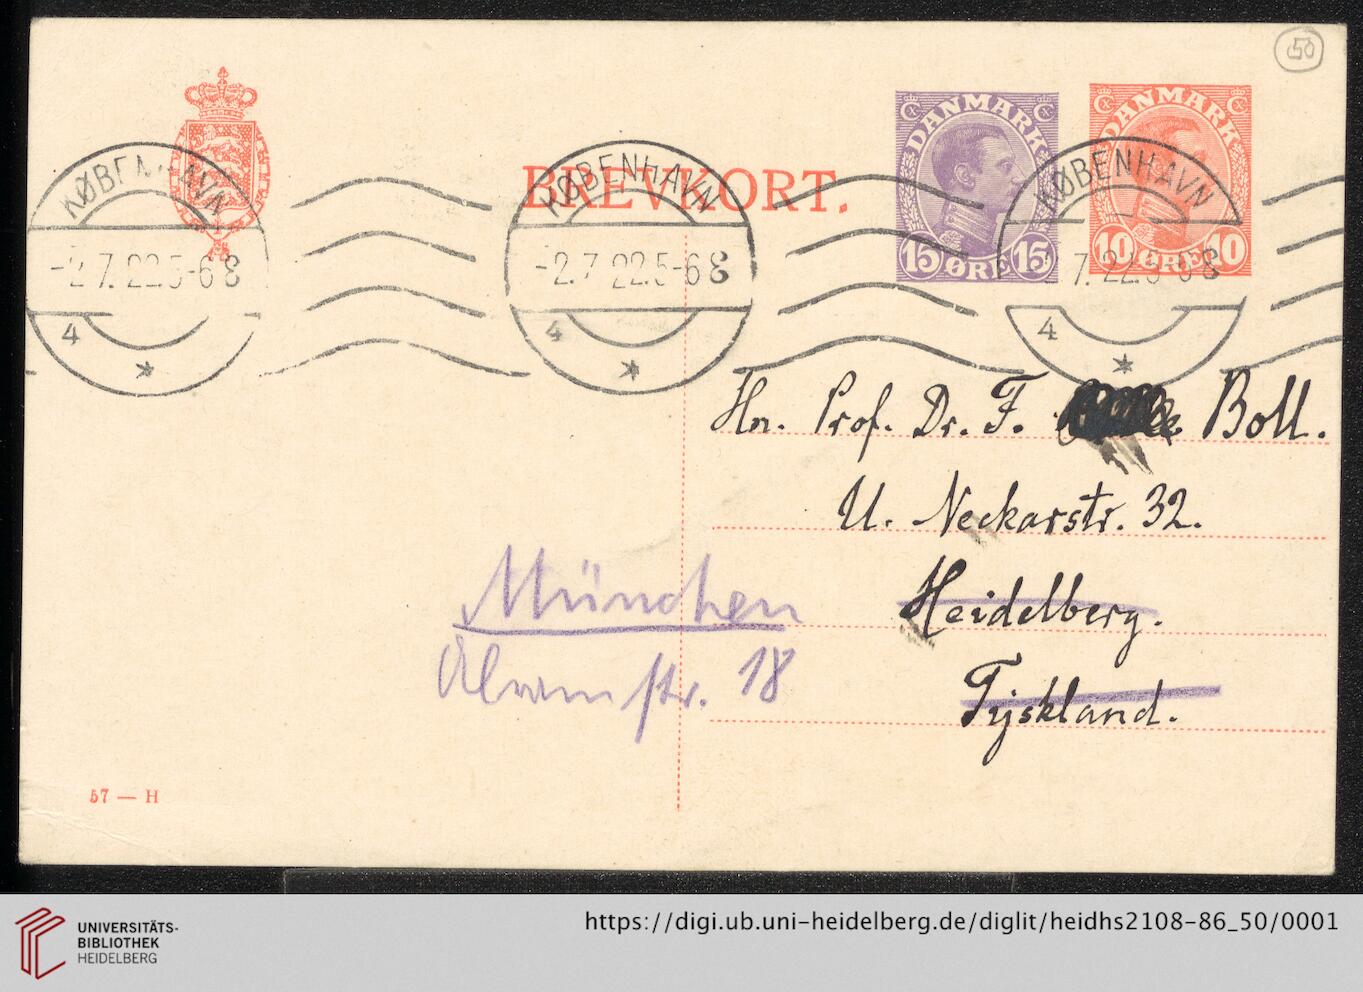 50
BREVKORT.
DANMARK
15 ØRE 15
DANMARK
10 ØRE 10
KØBENHAVN
-2.7.22.5-6 E
4
KØBENHAVN
-2.7.22.5-6 E
4
KØBENHAVN
7.22.5-6 E
4
Hn. Prof. Dr. F. Boll.
U. Neckarstr. 32.
Heidelberg.
Tyskland.
München
str. 18
57 — H
UNIVERSITÄTS-
BIBLIOTHEK
HEIDELBERG
https://digi.ub.uni-heidelberg.de/diglit/heidhs2108-86_50/0001